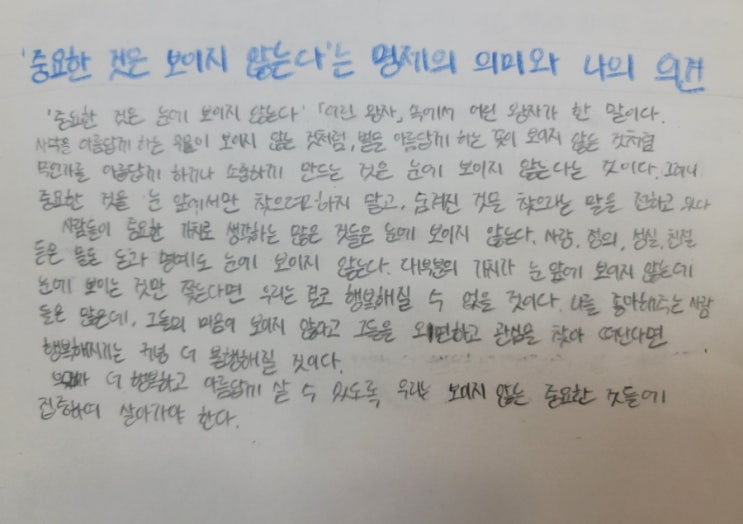 '중요한 것은 보이지 않는다'는 명제의 의미와 나의 의견
'중요한 것은 눈에 보이지 않는다' 「어린 왕자」 속에서 어린 왕자가 한 말이다.
사막을 아름답게 하는 우물이 보이지 않는 것처럼, 별을 아름답게 하는 꽃이 보이지 않는 것처럼
무언가를 아름답게 하거나 소중하게 만드는 것은 눈에 보이지 않는다는 것이다. 그러니
중요한 것을 눈 앞에서만 찾으려고 하지 말고, 숨겨진 것을 찾으라는 말을 전하고 있다
사람들이 중요한 가치로 생각하는 많은 것들은 눈에 보이지 않는다. 사랑, 정의, 성실, 친절
등은 물론 돈과 명예도 눈에 보이지 않는다. 대부분의 가치가 눈 앞에 보이지 않는데
눈에 보이는 것만 쫓는다면 우리는 결코 행복해질 수 없을 것이다. 나를 좋아해주는 사람
들은 많은데, 그들의 마음이 보이지 않는다고 그들을 외면하고 관심을 찾아 떠난다면
행복해지기는 커녕 더 불행해질 것이다.
더 행복하고 아름답게 살 수 있도록 우리는 보이지 않는 중요한 것들에
집중하며 살아가야 한다.